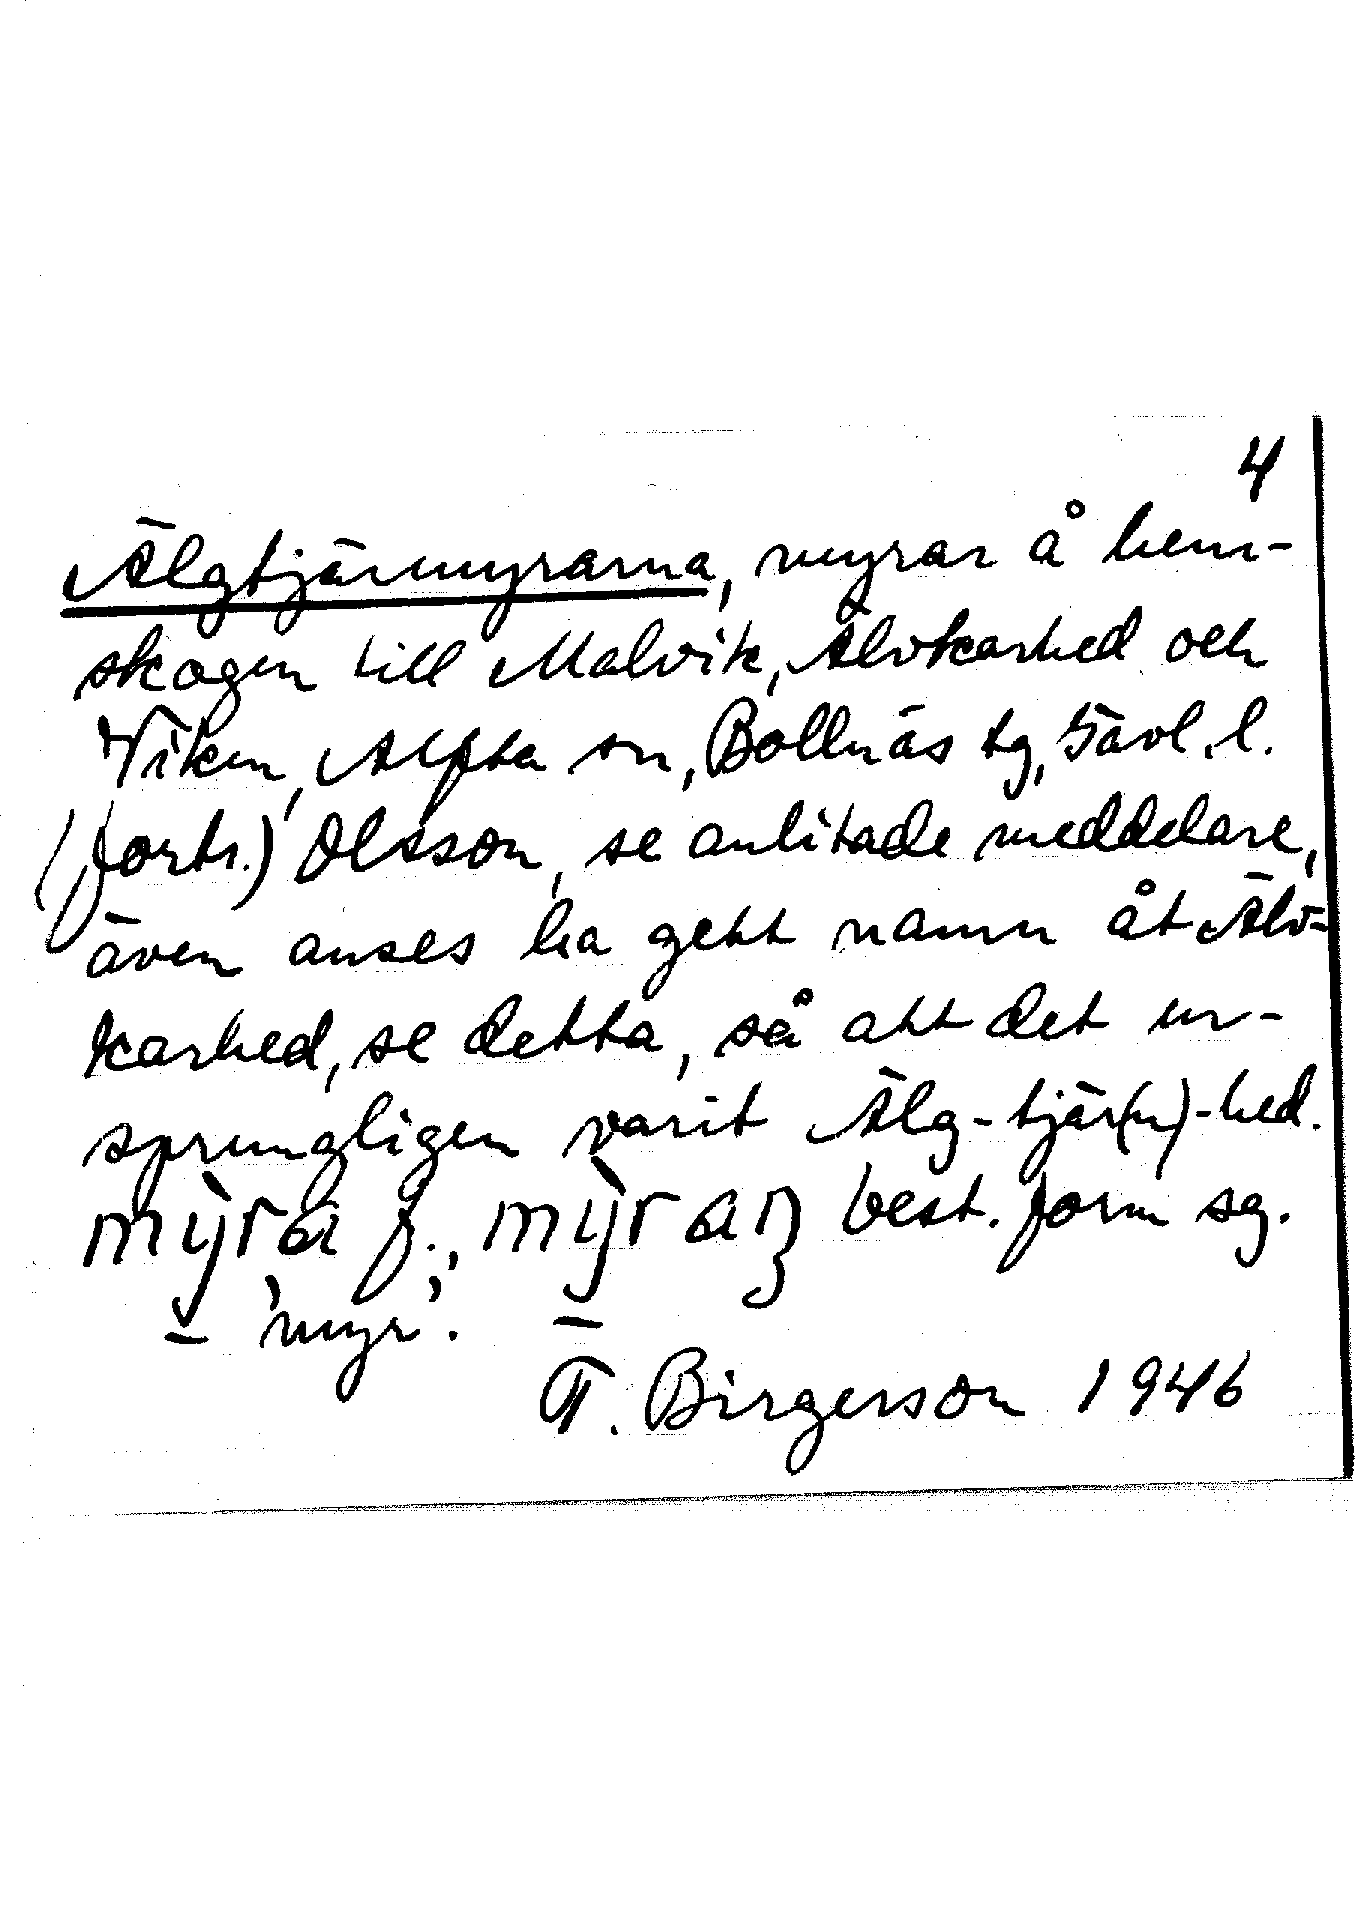 4
Älgtjärmyrarna, myrar å hem-
skogen till Malvik, Älvkarhed och
Viken, Alfta sn, Bollnäs tg, Gävl. l.
(forts.) Olsson, se anlitade meddelare,
även anses ha gett namn åt Älv-
karhed, se detta, så att det ur-
sprungligen varit Älg-tjär(n)-hed.
mỳra f., mỳran best. form sg.
'myr'.
T. Birgerson 1946